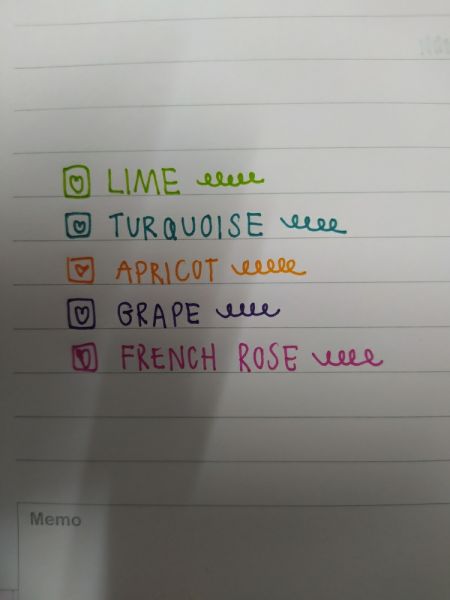 LIME
TURQUOISE
APRICOT
GRAPE
FRENCH ROSE
Memo